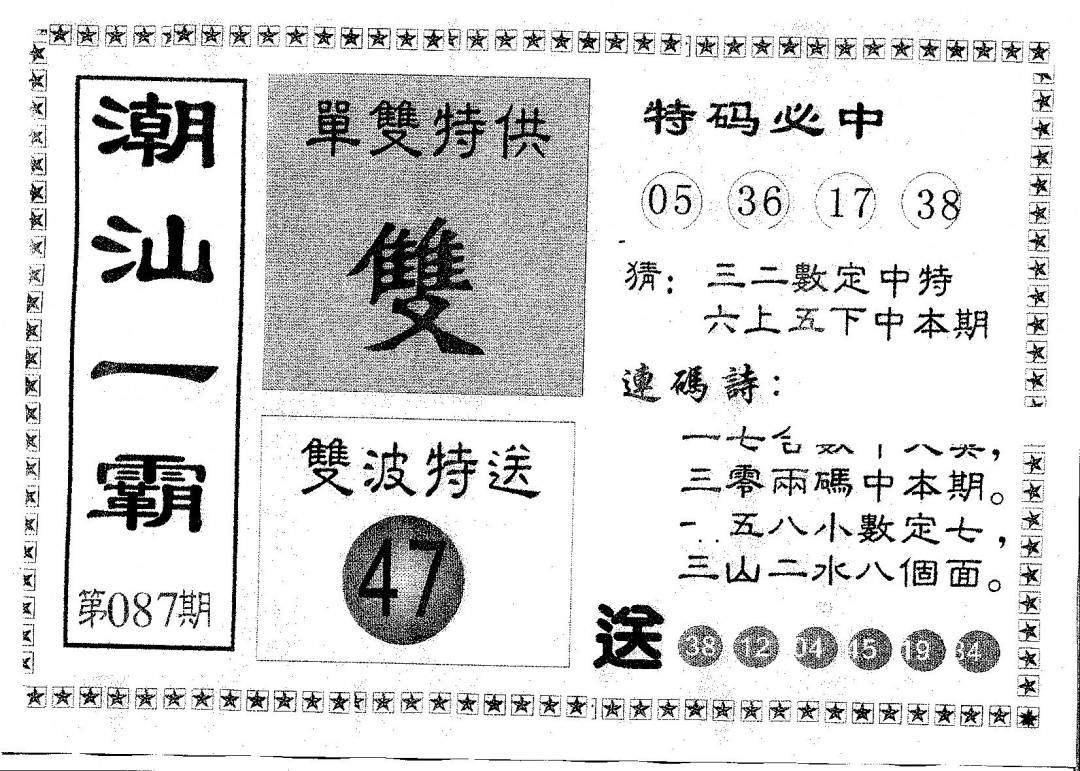 潮汕一霸
第087期
單雙特供
雙
雙波特送
47
特码必中
05 36 17 38
猜：三二數定中特
六上五下中本期
連碼詩：
一七合數
三零兩碼中本期。
五八小數定七，
三山二水八個面。
送 38 12 04 45 19 34